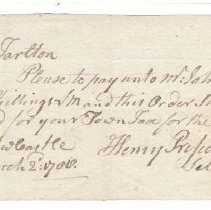 Tarlton
Please to pay unto Mr. John
Shillings LM and this Order Sh
d for your Town Tax for the
ewCastle
rch 2d: 1786. Henry Presco
Sele